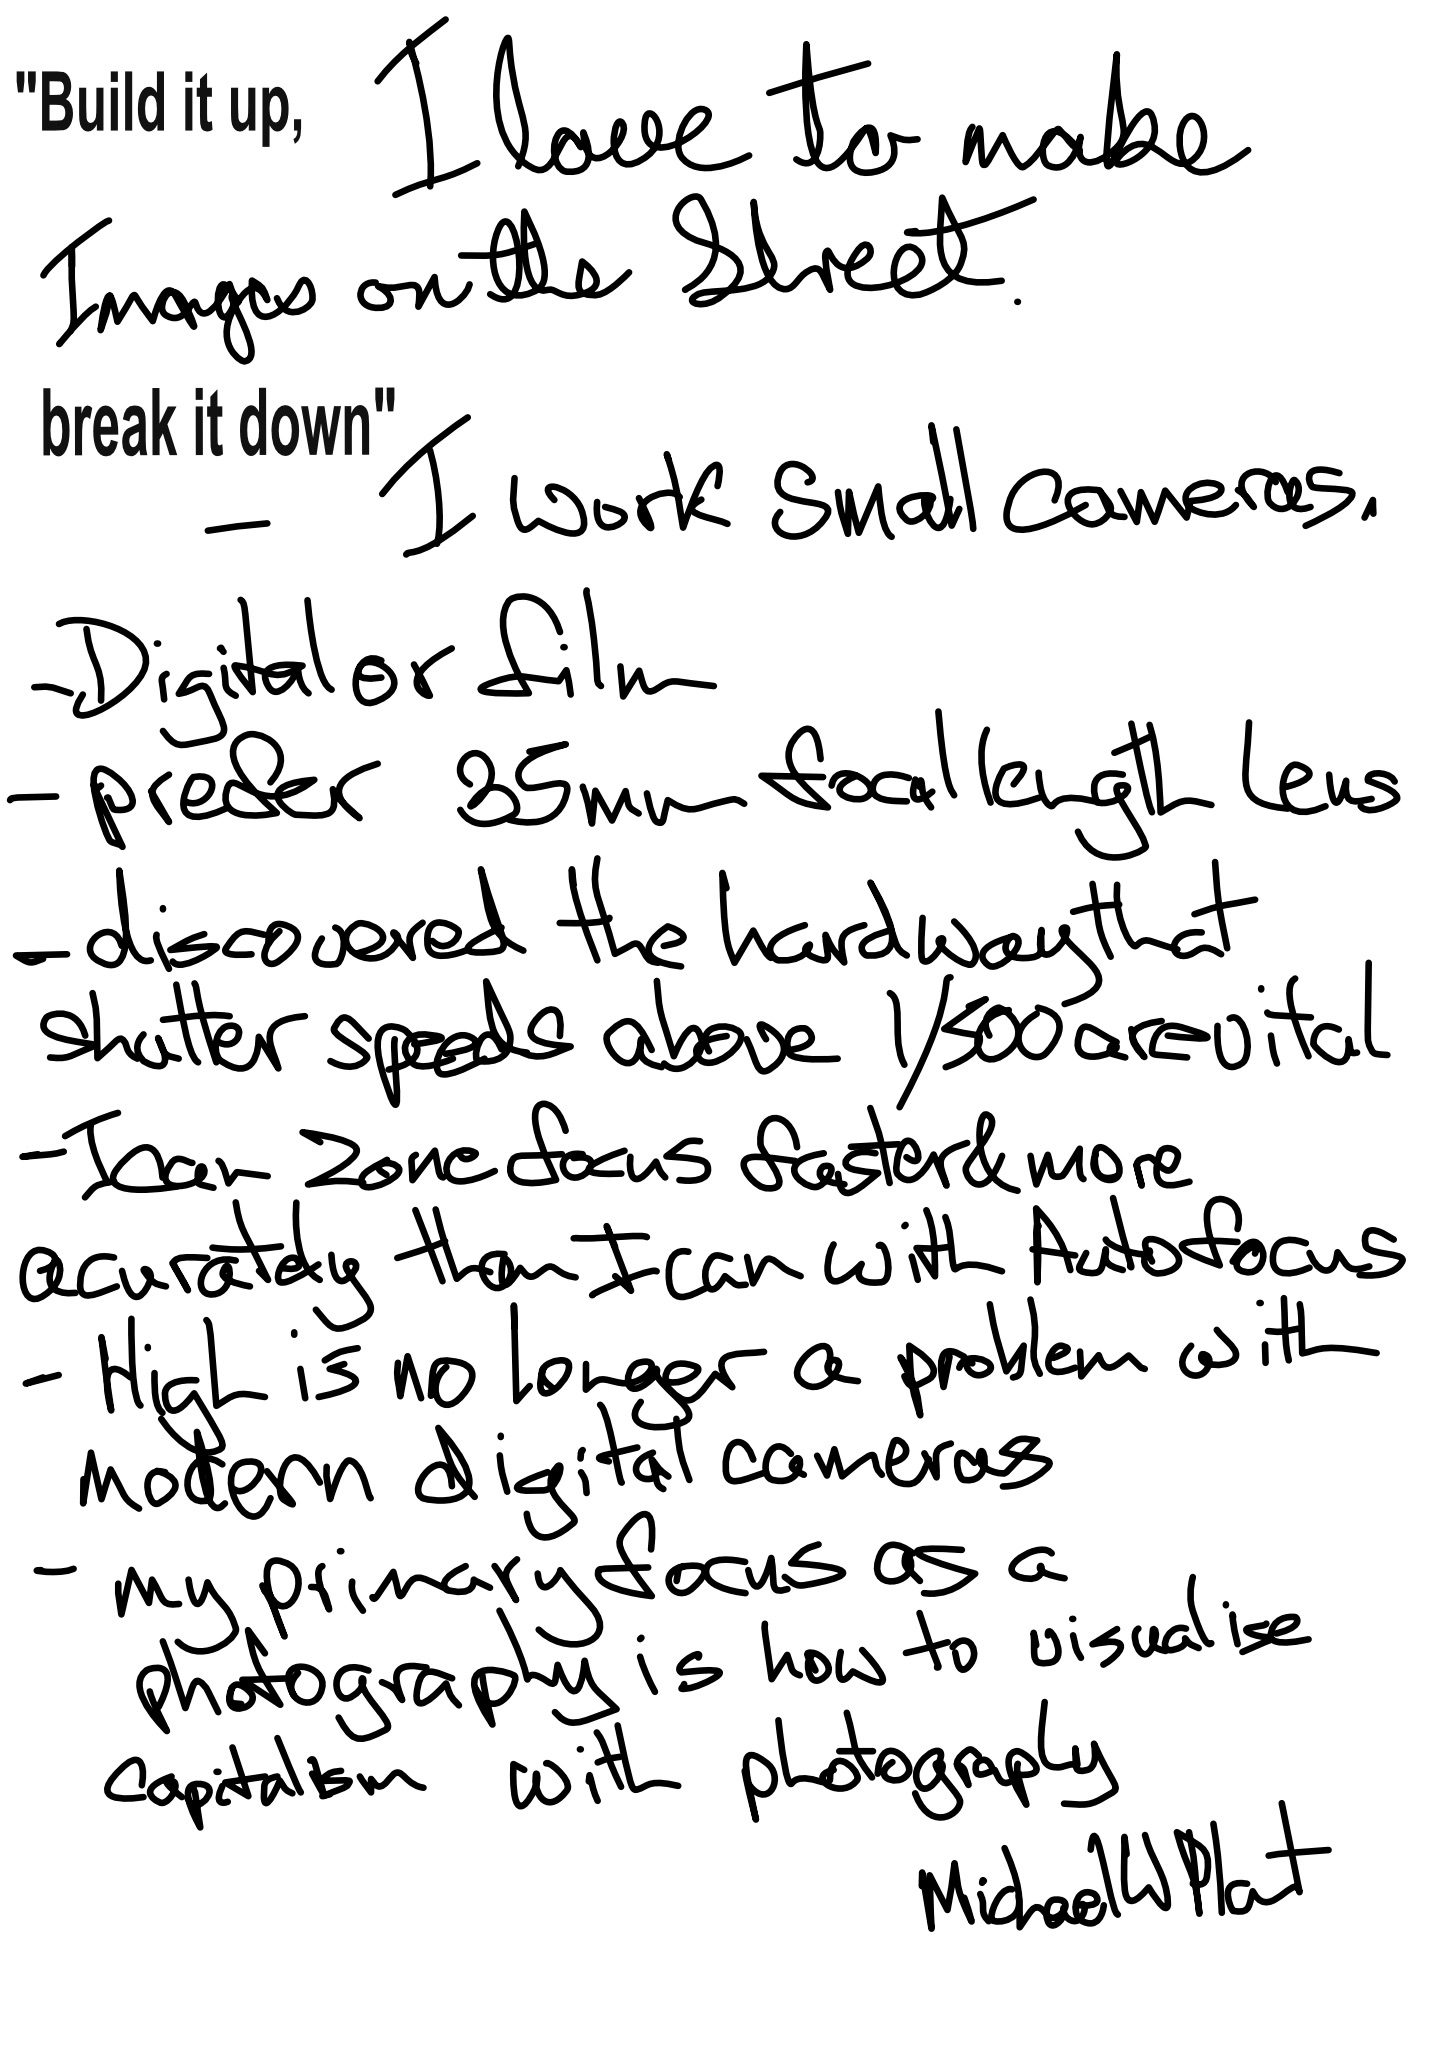 "Build it up, I love to make
Images on the Street.
break it down"
- I work small cameras.
- Digital or film
- prefer 35mm focal length Lens
- discovered the hard way that
shutter speeds above 1/500 are vital
- I can zone focus faster & more
acurately than I can with Autofocus
- High is no longer a problem with
modern digital cameras
- my primary focus as a
photography is how to visualise
capitalism with photography
Michael W Plant